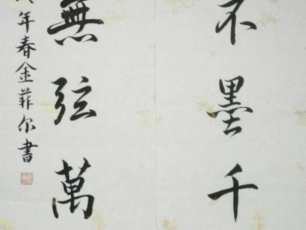 不墨千
無弦萬
年春金菲尔書